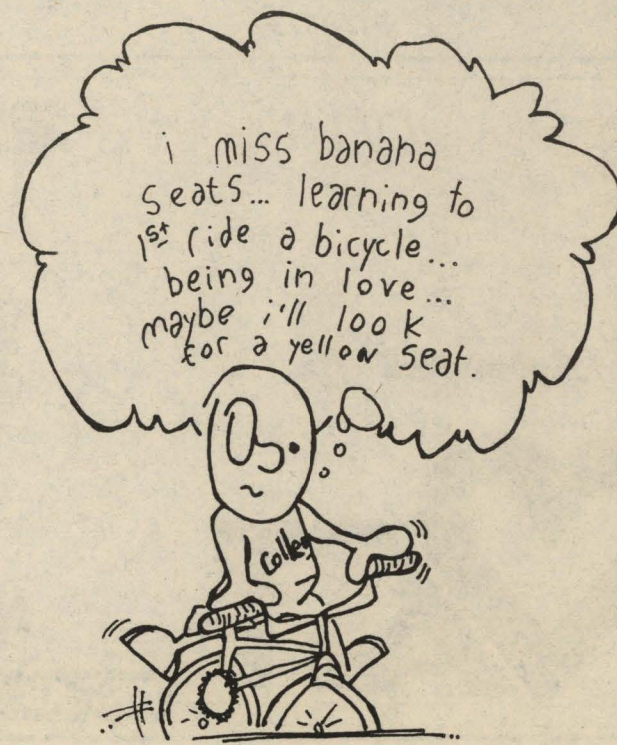 i miss banana
seats... learning to
1st ride a bicycle...
being in love...
maybe i'll look
for a yellow seat.
colleg